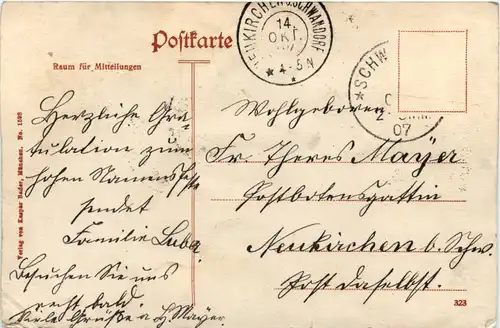 Postkarte
Raum für Mitteilungen
NEUKIRCHEN b. SCHWANDORF
14. OKT.
07
4-5N
SCHW
07
Herzliche Gra-
tulation zum
hohen Namensfeste
sendet
Familie Luba.
Besuchen Sie uns
recht bald.
Viele Grüße a. H. Mayer.
Wohlgeboren
Fr Theres Mayer
Postbotensgattin
Neukirchen b. Schw.
Post daselbst.
Verlag von Kaspar Bader, München. No. 1598
323